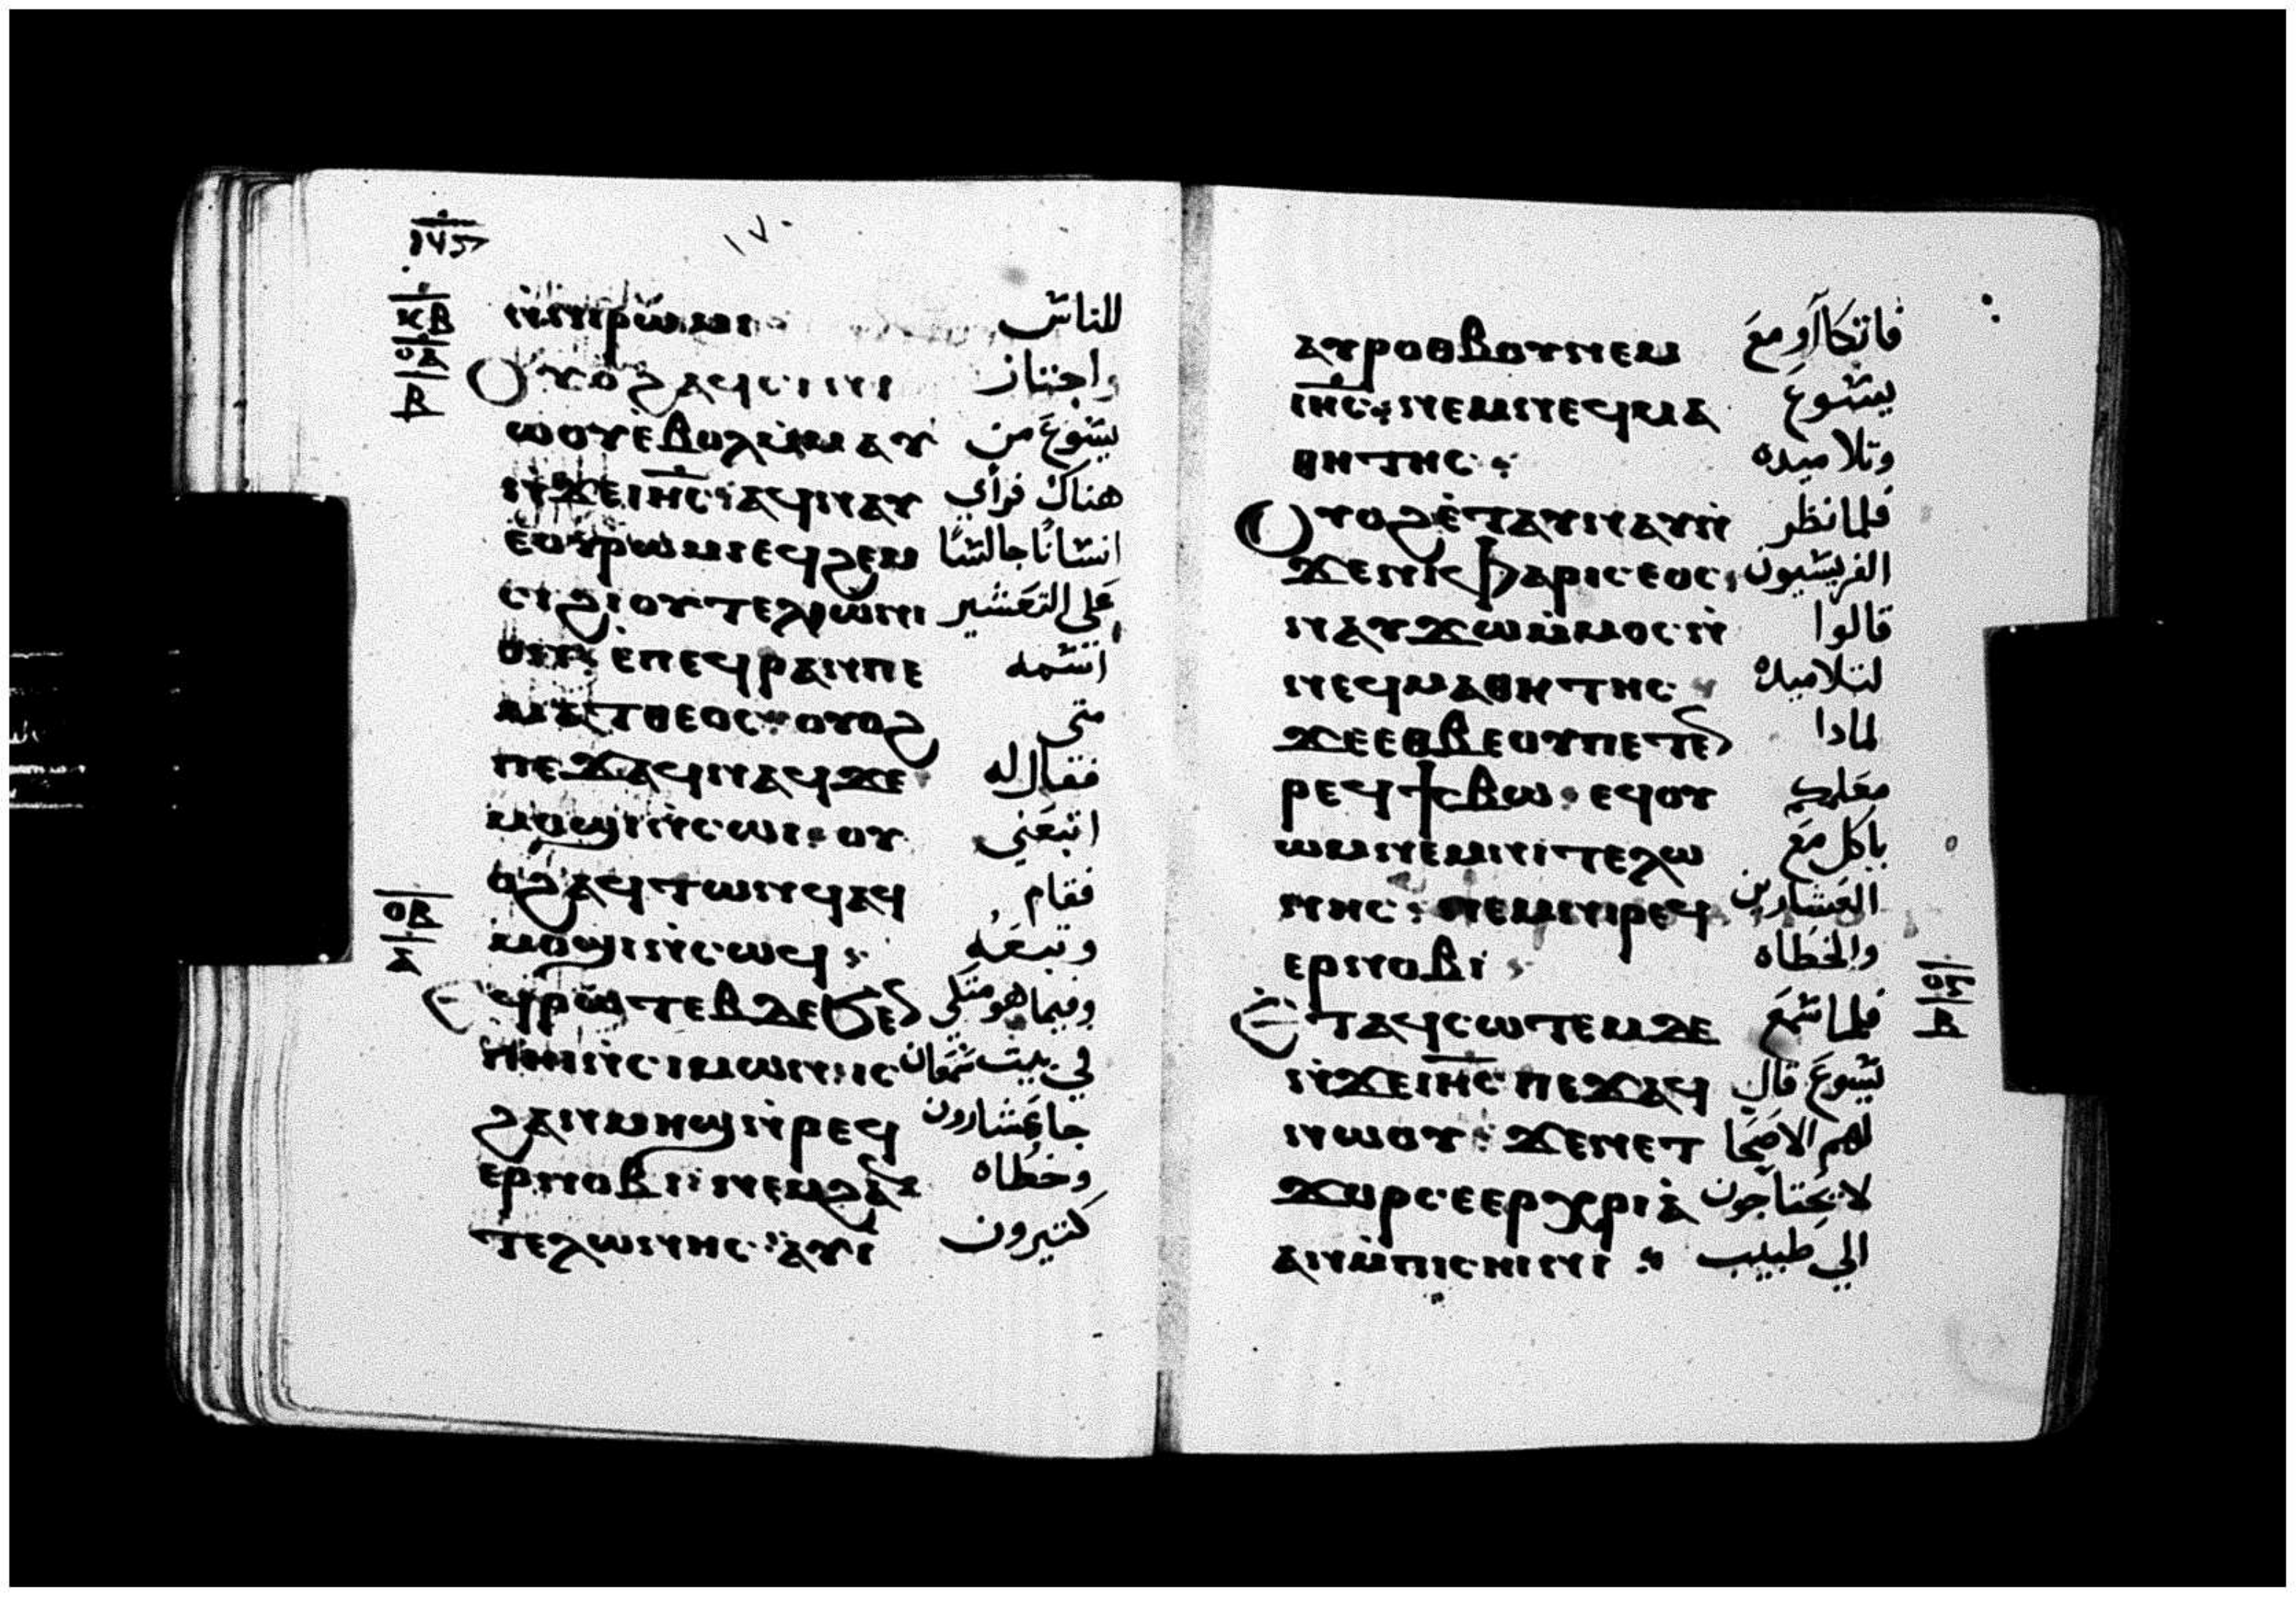 ١٧٠
ⲛ̀ⲛⲓⲣⲱⲙⲓ · للناس
ⲟⲩⲟϩ ⲁϥⲥⲓⲛⲓ واجتاز
ⲱⲟⲩ ⲉ̀ⲃⲟⲗ ⲙ̀ⲙⲁⲩ يسوع من
ⲛ̀ϫⲉ ⲓⲏⲥ : ⲁϥⲛⲁⲩ هناك فرأي
ⲉⲟⲩⲣⲱⲙⲓ ⲉϥϩⲉⲙ انسانًا جالسًا
ⲥⲓ ϩⲓ ⲟⲩⲧⲉⲗⲱⲛⲓ علي التعشير
ⲟⲛ : ⲉ̀ⲡⲉϥⲣⲁⲛ ⲡⲉ اسمه
ⲙⲁⲧⲑⲉⲟⲥ : ⲟⲩⲟϩ متى
ⲡⲉϫⲁϥ ⲛⲁϥ ϫⲉ فقال له
ⲙⲟϣⲓ ⲛ̀ⲥⲱⲓ : ⲟⲩ اتبعني
ⲟϩ ⲁϥⲧⲱⲛϥ ⲁϥ فقام
ⲙⲟϣⲓ ⲛ̀ⲥⲱϥ : وتبعه
ⲉϥⲣⲱⲧⲉⲃ ⲇⲉ ϧⲉⲛ وفيما هو متكي
ⲡⲏⲓ ⲛ̀ⲥⲓⲙⲱⲛ : ⲓⲥ في بيت سمعان
ϩⲁⲛⲙⲏϣ ⲛ̀ⲣⲉϥ جا عشارون
ⲉⲣⲛⲟⲃⲓ : ⲛⲉⲙ ϩⲁⲛ وخطاه
ⲧⲉⲗⲱⲛⲏⲥ : ⲁⲩⲓ̀ كتيرون
ⲕⲃ
ⲟⲁ
ⲃ
ⲟⲃ
ⲁⲩⲣⲟⲑⲃⲟⲩ ⲛⲉⲙ فاتكاآو مع
ⲓⲏⲥ : ⲛⲉⲙ ⲛⲉϥⲙⲁ يسوع
ⲑⲏⲧⲏⲥ : وتلاميده
ⲟⲩⲟϩ ⲉ̀ⲧⲁⲩⲛⲁⲩ ⲛ̀ فلما نظر
ϫⲉ ⲛⲓⲫⲁⲣⲓⲥⲉⲟⲥ : الفريسيون
ⲛⲁⲩϫⲱ ⲙ̀ⲙⲟⲥ ⲛ̀ قالوا
ⲛⲉϥⲙⲁⲑⲏⲧⲏⲥ : لتلاميده
ϫⲉ ⲉⲑⲃⲉ ⲟⲩ ⲡⲉⲧⲉⲛ لمادا
ⲣⲉϥϯⲥⲃⲱ : ⲉϥⲟⲩ معلمكم
ⲱⲙ ⲛⲉⲙ ⲛⲓⲧⲉⲗⲱ ياكل مع
ⲛⲏⲥ : ⲛⲉⲙ ⲛⲓⲣⲉϥ العشارين
ⲉⲣⲛⲟⲃⲓ : والخطاه
ⲉ̀ⲧⲁϥⲥⲱⲧⲉⲙ ⲇⲉ فلما سمع
ⲛ̀ϫⲉ ⲓⲏⲥ ⲡⲉϫⲁϥ يسوع قال
ⲛⲱⲟⲩ : ϫⲉ ⲛⲉⲧ لهم الاصحا
ϫⲟⲣ ⲥⲉⲉⲣⲭⲣⲓⲁ̀ لا يحتاجون
ⲁⲛ ⲙ̀ⲡⲓⲥⲏⲓⲛⲓ : الي طبيب
ⲟⲅ
ⲃ